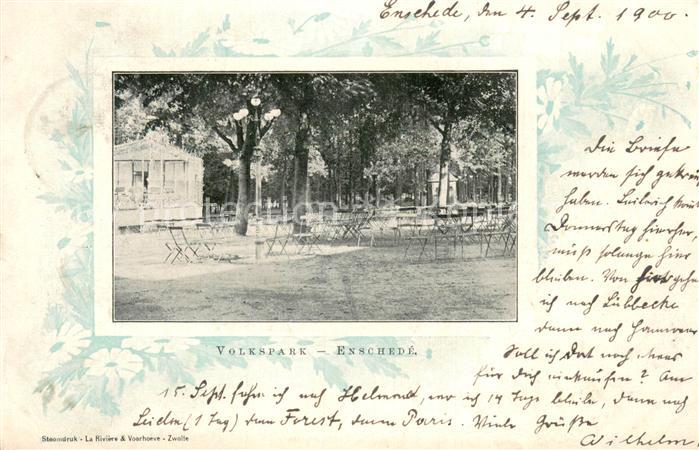 Enschede, den 4. Sept. 1900.
Die Briefe
werden sich gekreuzt
haben. Heinrich kommt
Donnerstag hierher,
muß solange hier
bleiben. Von hier gehe
ich nach Lübbecke
dann nach Hannover
Soll ich dort noch etwas
für Dich einkaufen? Am
15. Sept. fahre ich nach Helmond, wo ich 14 Tage bleibe, dann nach
Leiden (1 Tag) dann Forest, dann Paris. Viele Grüße
Wilhelm.
VOLKSPARK – ENSCHEDÉ.
Steendruk - La Rivière & Voorhoeve - Zwolle